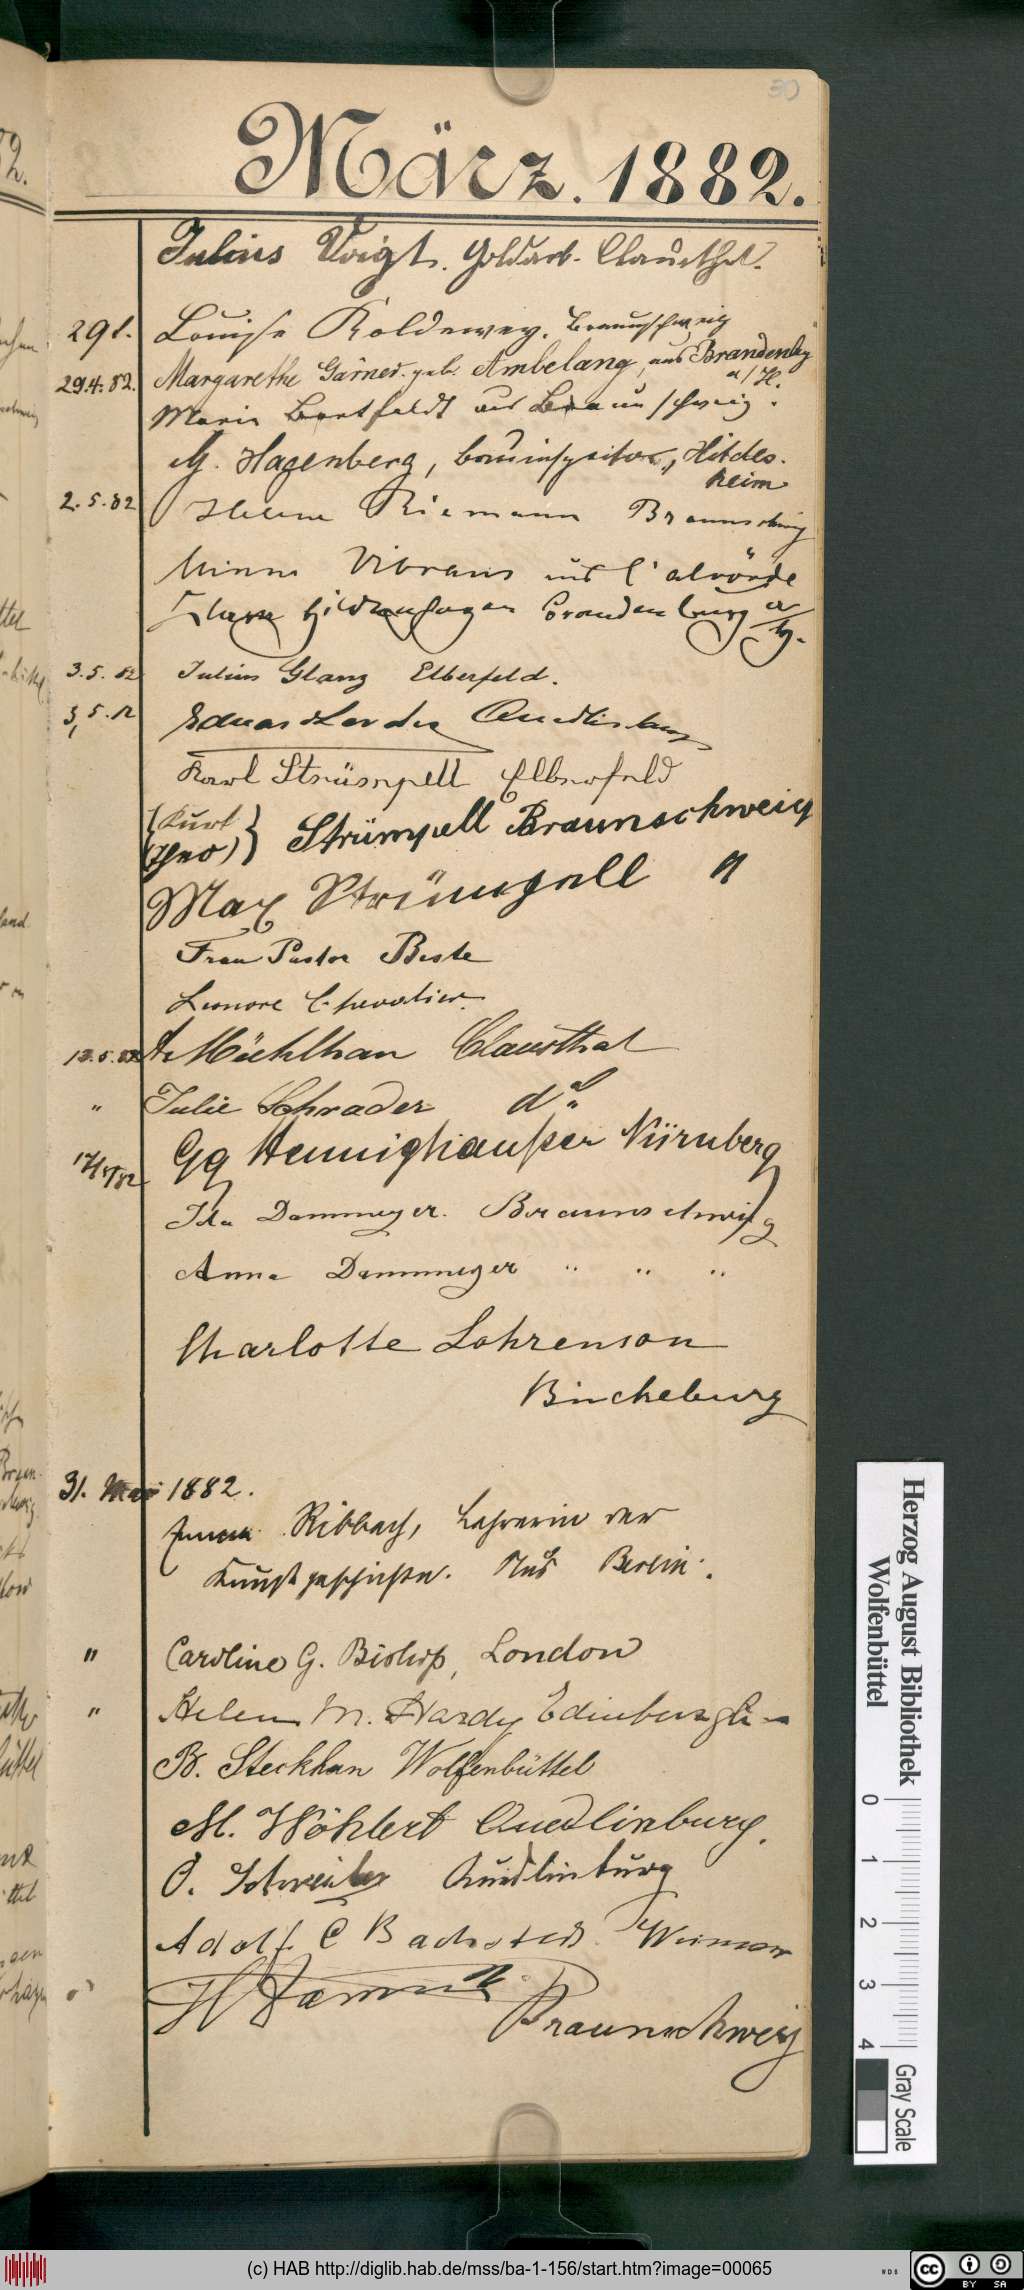 30
März. 1882.
Julius Voigt. Goldarb. Clausthal.
29/. Louise Koldewey. Braunschweig
29.4.82. Margarethe Gärner. geb. Ambelang, aus Brandenbg
a/H.
Marie Bortfeldt aus Braunschweig.
G. Hagenberg, Hildes-
heim
2.5.82 Helene Riemann Braunschweig
Minna Vibrans aus Calvörde
Clara Hildenhagen Brandenburg a/H.
3.5.82 Julius Glanz Elberfeld.
3.5.82 Eduard Quedlinburg
Karl Strümpell Elberfeld
{Kurt
Theo} Strümpell Braunschweig
Max Strümpell "
Frau Pastor Beste
Leonore Chevalier.
13.5.82 A. Mühlhan Clausthal
" Julie Schrader do.
17/5/82 Gg Hennighaußer Nürnberg
Ida Dammeyer. Braunschweig
Anna Dammeyer " " "
Charlotte Lohrenson
Bückeburg
31. Mai 1882.
Emma Ribbach, Lehrerin der
Kunstgeschichte. Aus Berlin.
" Caroline G. Bishop, London
" Helen M. Hardy Edinburgh
B. Steckhan Wolfenbüttel
M. Wöhlert Quedlinburg.
O. Schreiber Quedlinburg
Adolf C Bachstedt Weimar
H
Braunschweig
Herzog August Bibliothek
Wolfenbüttel
0 1 2 3 4
Gray Scale
(c) HAB http://diglib.hab.de/mss/ba-1-156/start.htm?image=00065
WDB
cc BY SA